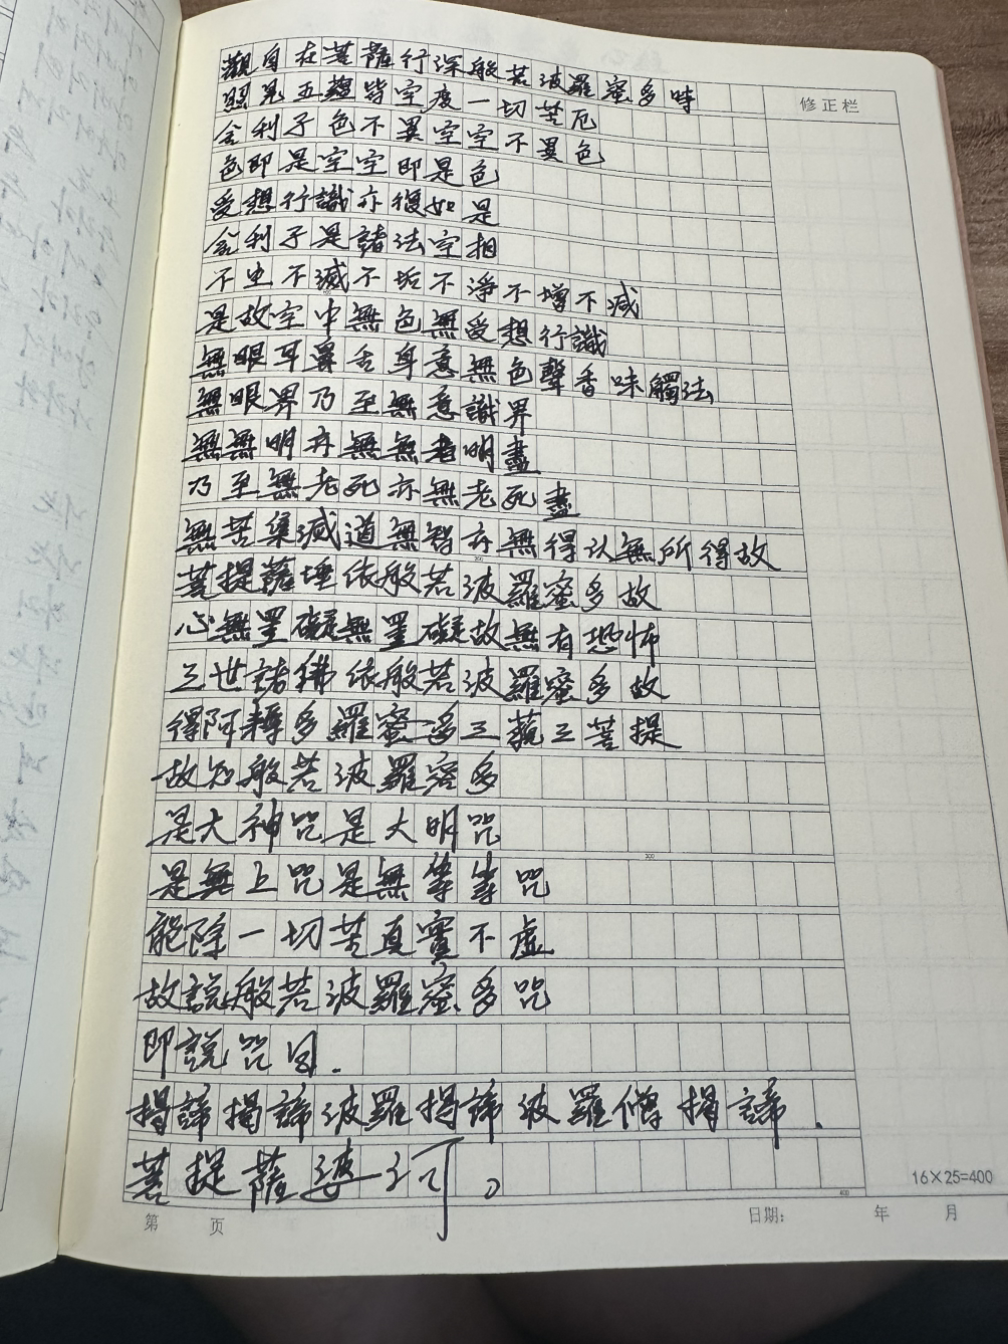 觀自在菩薩行深般若波羅蜜多時
修正栏
照見五蘊皆空度一切苦厄
舍利子色不異空空不異色
色即是空空即是色
受想行識亦復如是
舍利子是諸法空相
不生不滅不垢不淨不增不減
是故空中無色無受想行識
無眼耳鼻舌身意無色聲香味觸法
無眼界乃至無意識界
無無明亦無無明盡
乃至無老死亦無老死盡
無苦集滅道無智亦無得以無所得故
菩提薩埵依般若波羅蜜多故
心無罣礙無罣礙故無有恐怖
三世諸佛依般若波羅蜜多故
得阿耨多羅蜜多三藐三菩提
故知般若波羅蜜多
是大神咒是大明咒
是無上咒是無等等咒
能除一切苦真實不虛
故說般若波羅蜜多咒
即說咒曰.
揭諦揭諦波羅揭諦波羅僧揭諦.
菩提薩婆訶。
16×25=400
第 页 日期: 年 月